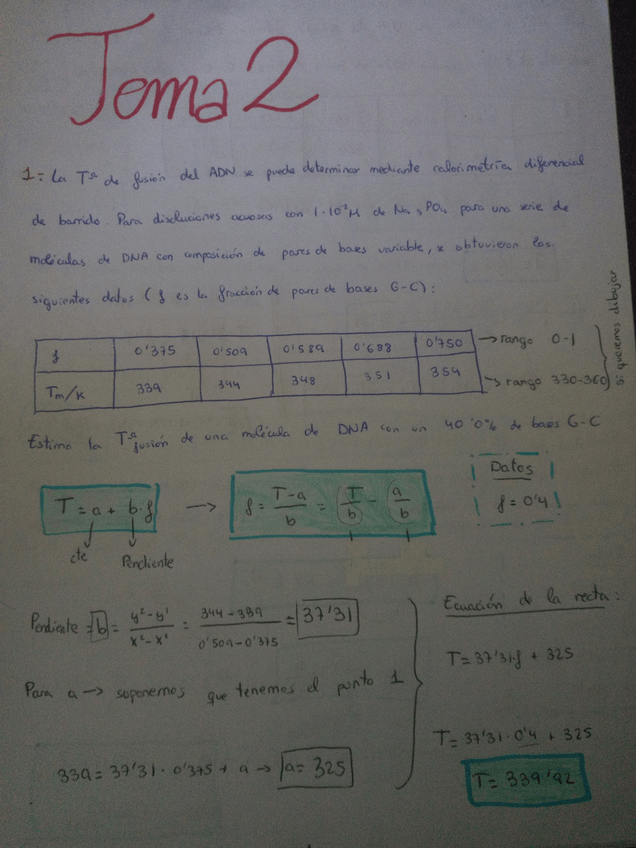 Tema 2
1= La Tª de fusión del ADN se puede determinar mediante calorimetría diferencial
de barrido. Para disoluciones acuosas con 1·10⁻²M de Na₃PO₄ para una serie de
moléculas de DNA con composición de pares de bases variable, se obtuvieron los
siguientes datos (f es la fracción de pares de bases G-C):
f 0'375 0'509 0'589 0'688 0'750 → rango 0-1
Tm/K 339 344 348 351 354 → rango 330-360
Si queremos dibujar
Estima la Tª fusión de una molécula de DNA con un 40'0% de bases G-C
T = a + b·f → f = T-a/b = T/b - a/b
cte Pendiente
Datos
f = 0'4
Pendiente = b = y²-y¹/x²-x¹ = 344-339/0'509-0'375 = 37'31
Para a → suponemos que tenemos el punto 1
339 = 37'31 · 0'375 + a → a = 325
Ecuación de la recta:
T = 37'31·f + 325
T = 37'31·0'4 + 325
T = 339'92